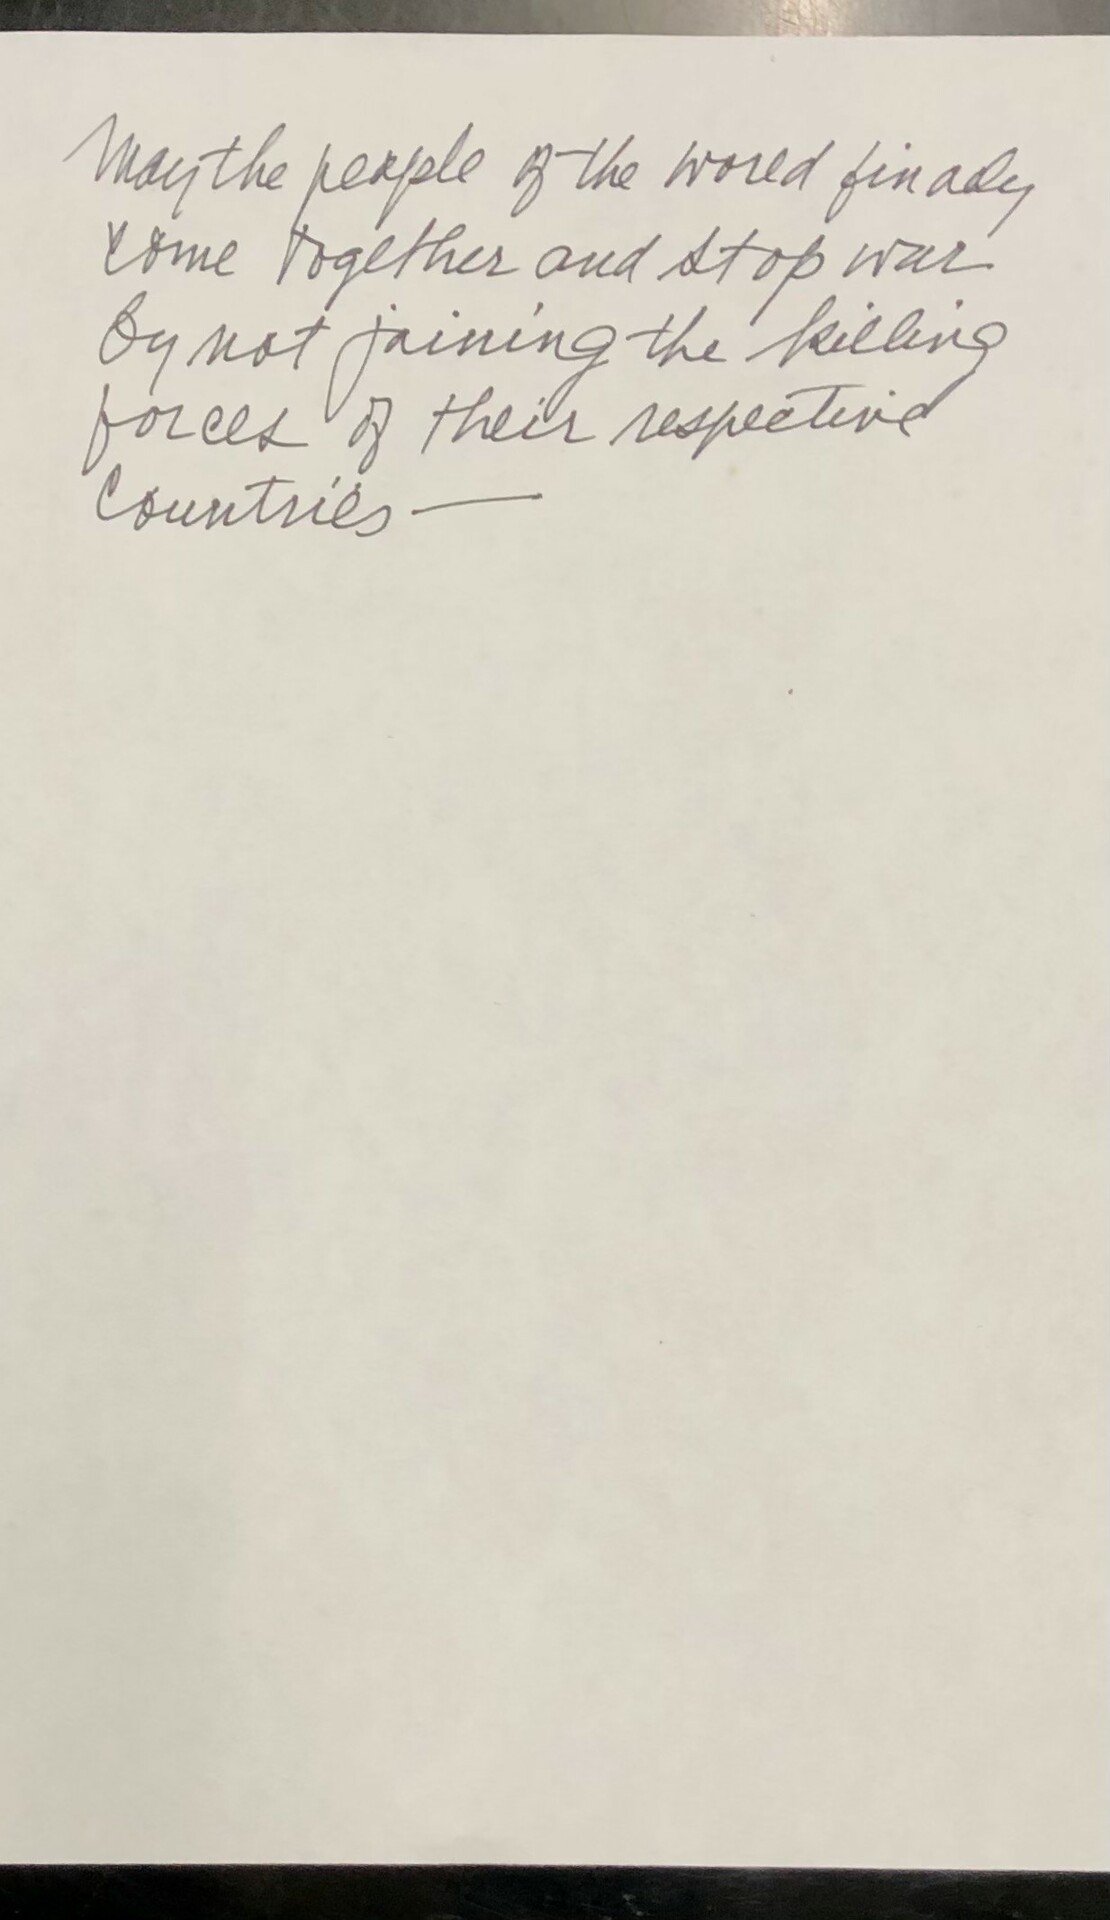 May the people of the world finally
come together and stop war
By not joining the killing
forces of their respective
Countries —